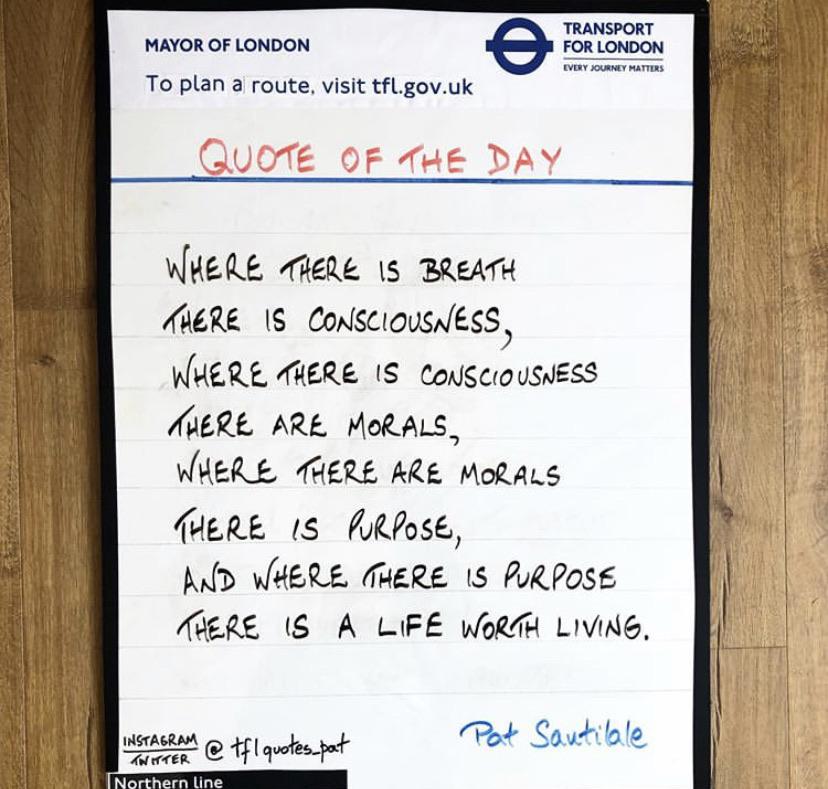 MAYOR OF LONDON
TRANSPORT
FOR LONDON
EVERY JOURNEY MATTERS
To plan a route, visit tfl.gov.uk
QUOTE OF THE DAY
WHERE THERE IS BREATH
THERE IS CONSCIOUSNESS,
WHERE THERE IS CONSCIOUSNESS
THERE ARE MORALS,
WHERE THERE ARE MORALS
THERE IS PURPOSE,
AND WHERE THERE IS PURPOSE
THERE IS A LIFE WORTH LIVING.
Pat Sautilale
INSTAGRAM
TWITTER
@tflquotes_pat
Northern line